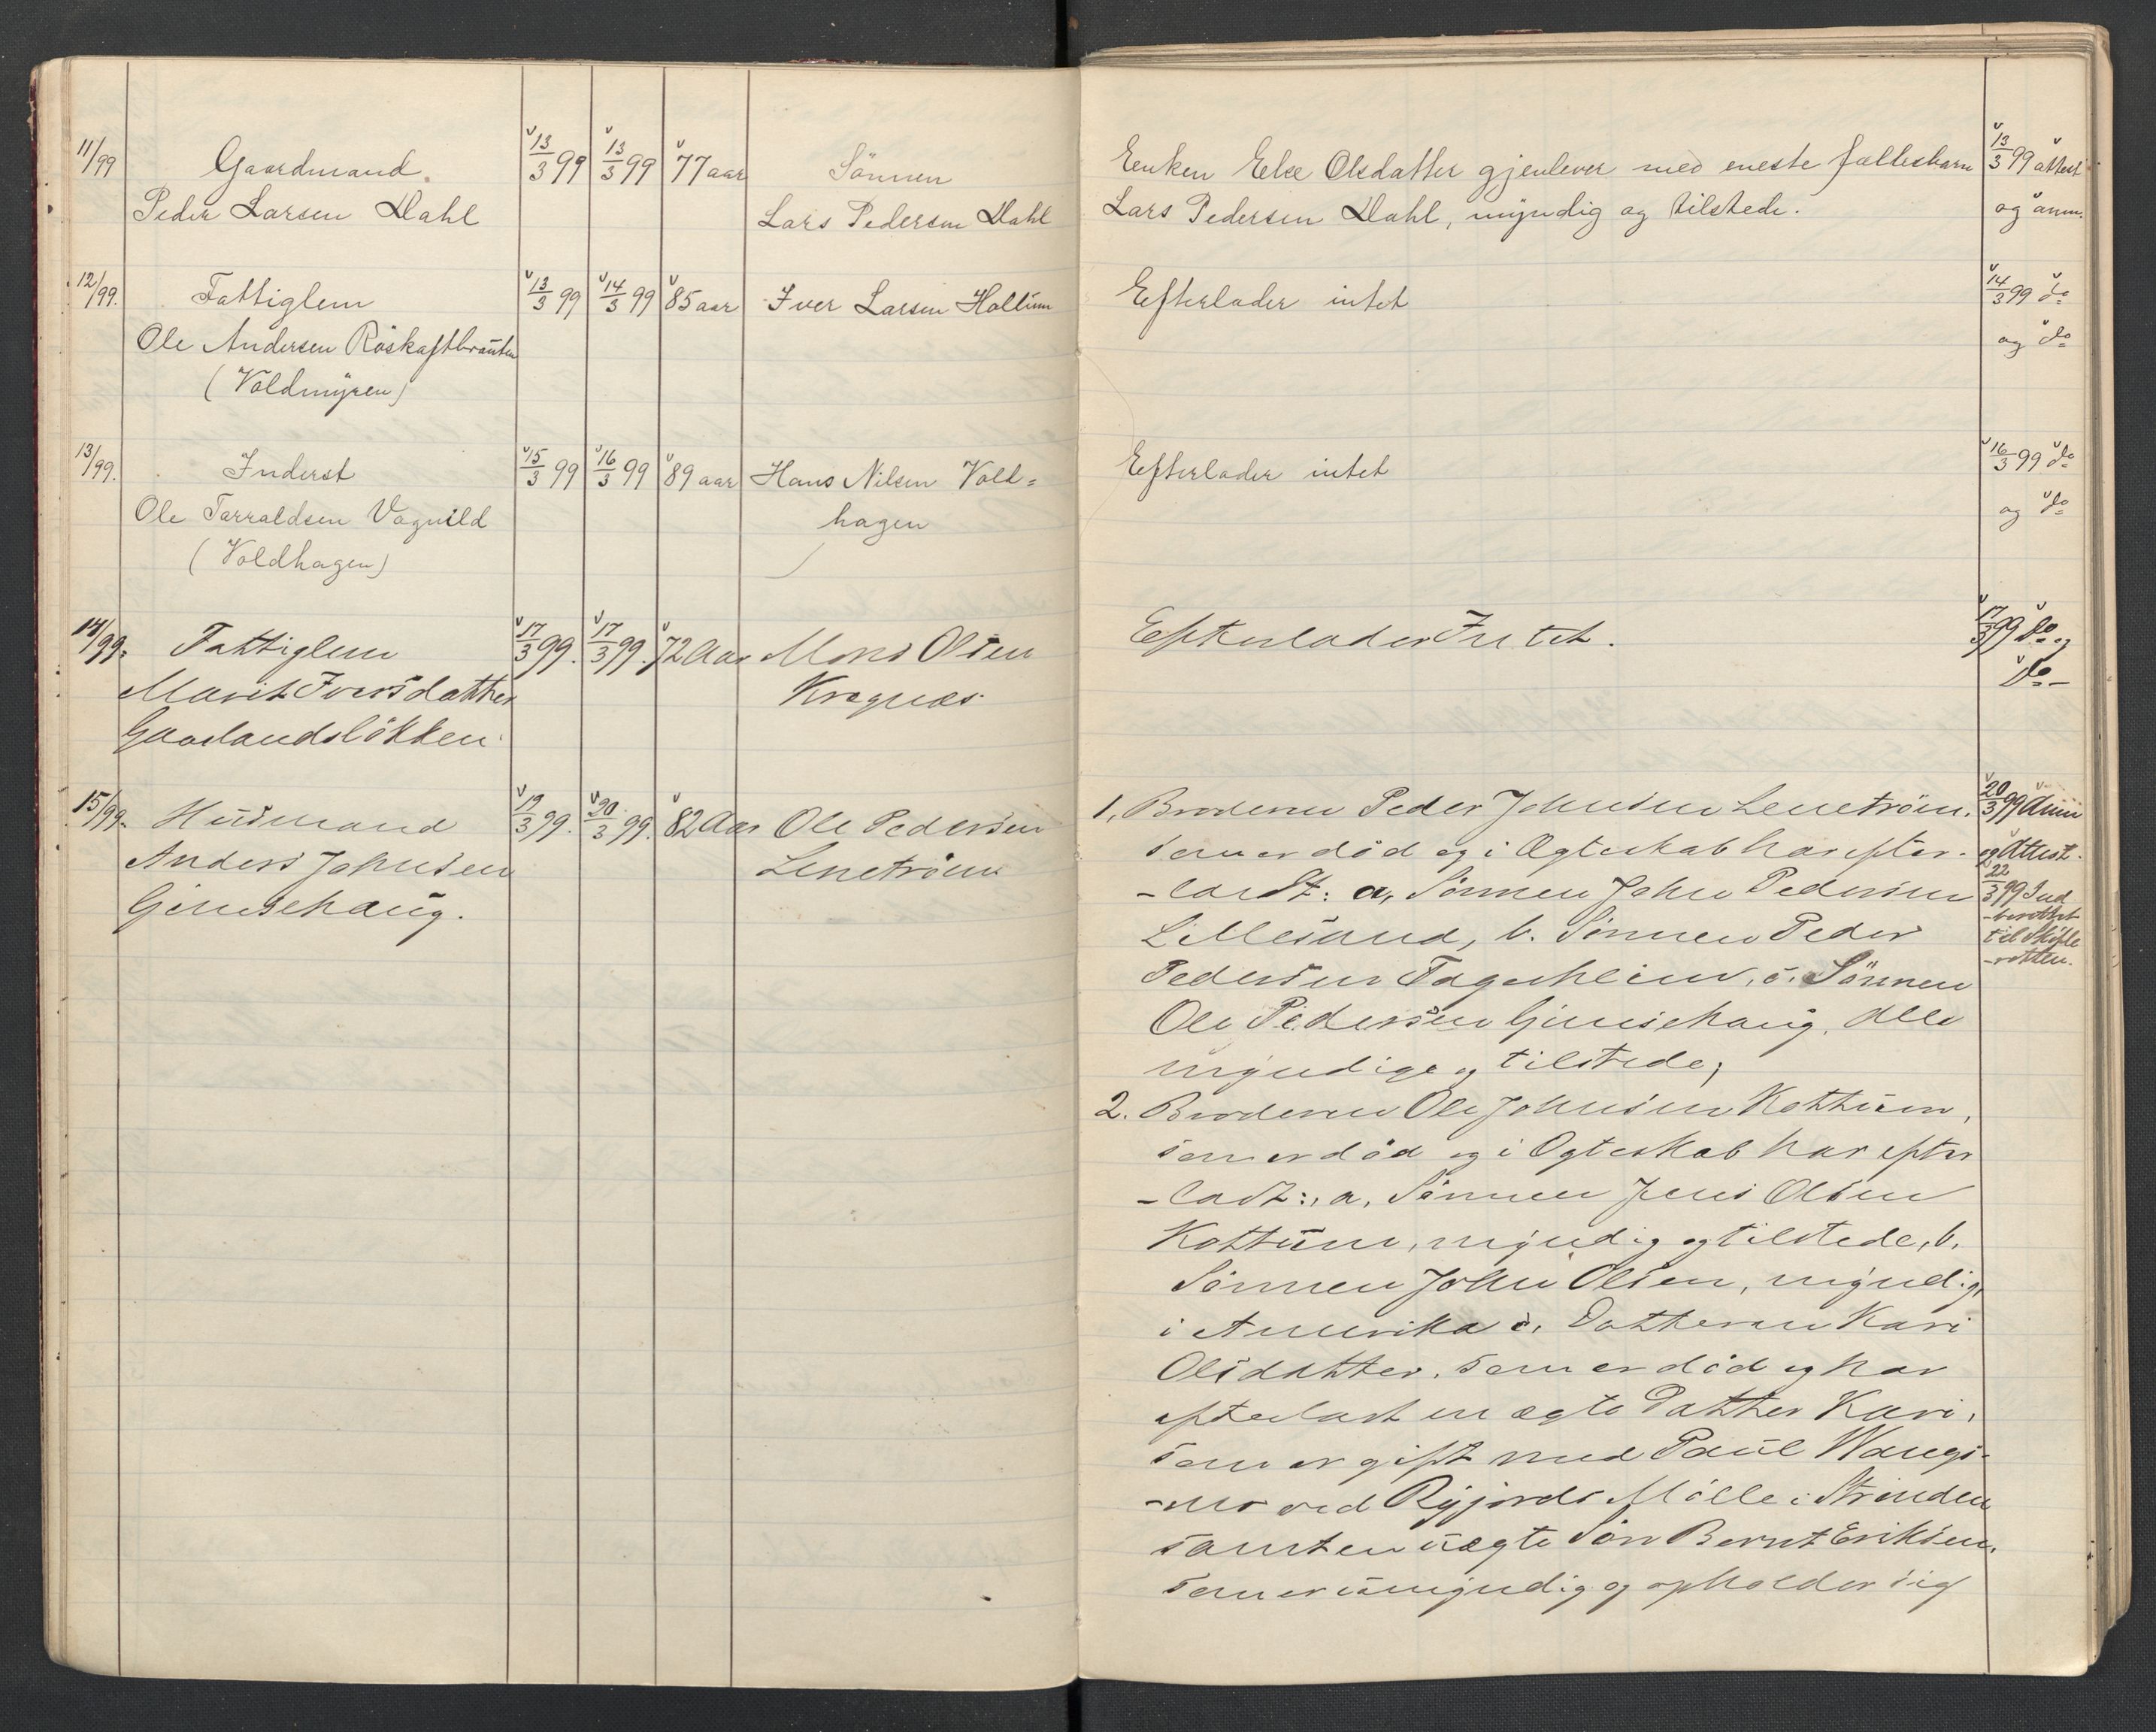 11/99 Gaardmand 13/3 99 13/3 99 77 aar Sønnen
Peder Larsen Dahl Lars Pedersen Dahl
12/99. Fattiglem 13/3 99 14/3 99 85 aar Iver Larsen Hollum
Ole Andersen Röskaftbrauten
(Voldmyren)
13/99. Inderst 15/3 99 16/3 99 89 aar Hans Nilsen Vold=
Ole Tarraldsen Vagnild hagen
(Voldhagen)
14/99. Fattiglem 17/3 99. 17/3 99. 72 Aar Mons Olsen
Marit Iversdatter Kregnes
Gaaslandsløkken.
15/99. Husmand 19/3 99. 20/3 99. 82 Aar Ole Pedersen
Anders Johnsen Lenetrøen
Gimsehaug.
Enken Else Olsdatter gjenlever med eneste fællesbarn 13/3 99 attest
Lars Pedersen Dahl, myndig og tilstede. og anm.
Efterlader intet 14/3 99 do
og do
Efterlader intet 16/3 99 do
og do
Efterlader Intet. 17/3 99 do og
do -
1, Broderen Peder Johnsen Lenetrøen. 20/3 99 Anm
som er död og i Ægteskab har efter- og Attest.
-ladt: a, Sønnen John Pedersen 22/3 99 Ind
Lillesand, b. Sønnen Peder -berettet
til Skifte
Pedersen Fagerheim, c. Sønnen -retten.
Ole Pedersen Gimsehaug, alle
myndige og tilstede;
2. Broderen Ole Johnsen Kottum,
som er död og i Ægteskab har efter
-ladt:, a, Sønnen Jens Olsen
Kottum, myndig og tilstede, b.
Sønnen John Olsen, myndig,
i Amerika c, Datteren Kari
Olsdatter, som er död og har
efterladt en ægte Datter Kari,
som er gift med Paul Wangs-
-mo ved Ryjords Mölle i Strinden
samt en uægte Søn Bernt Eriksen,
som er umyndig og opholder sig